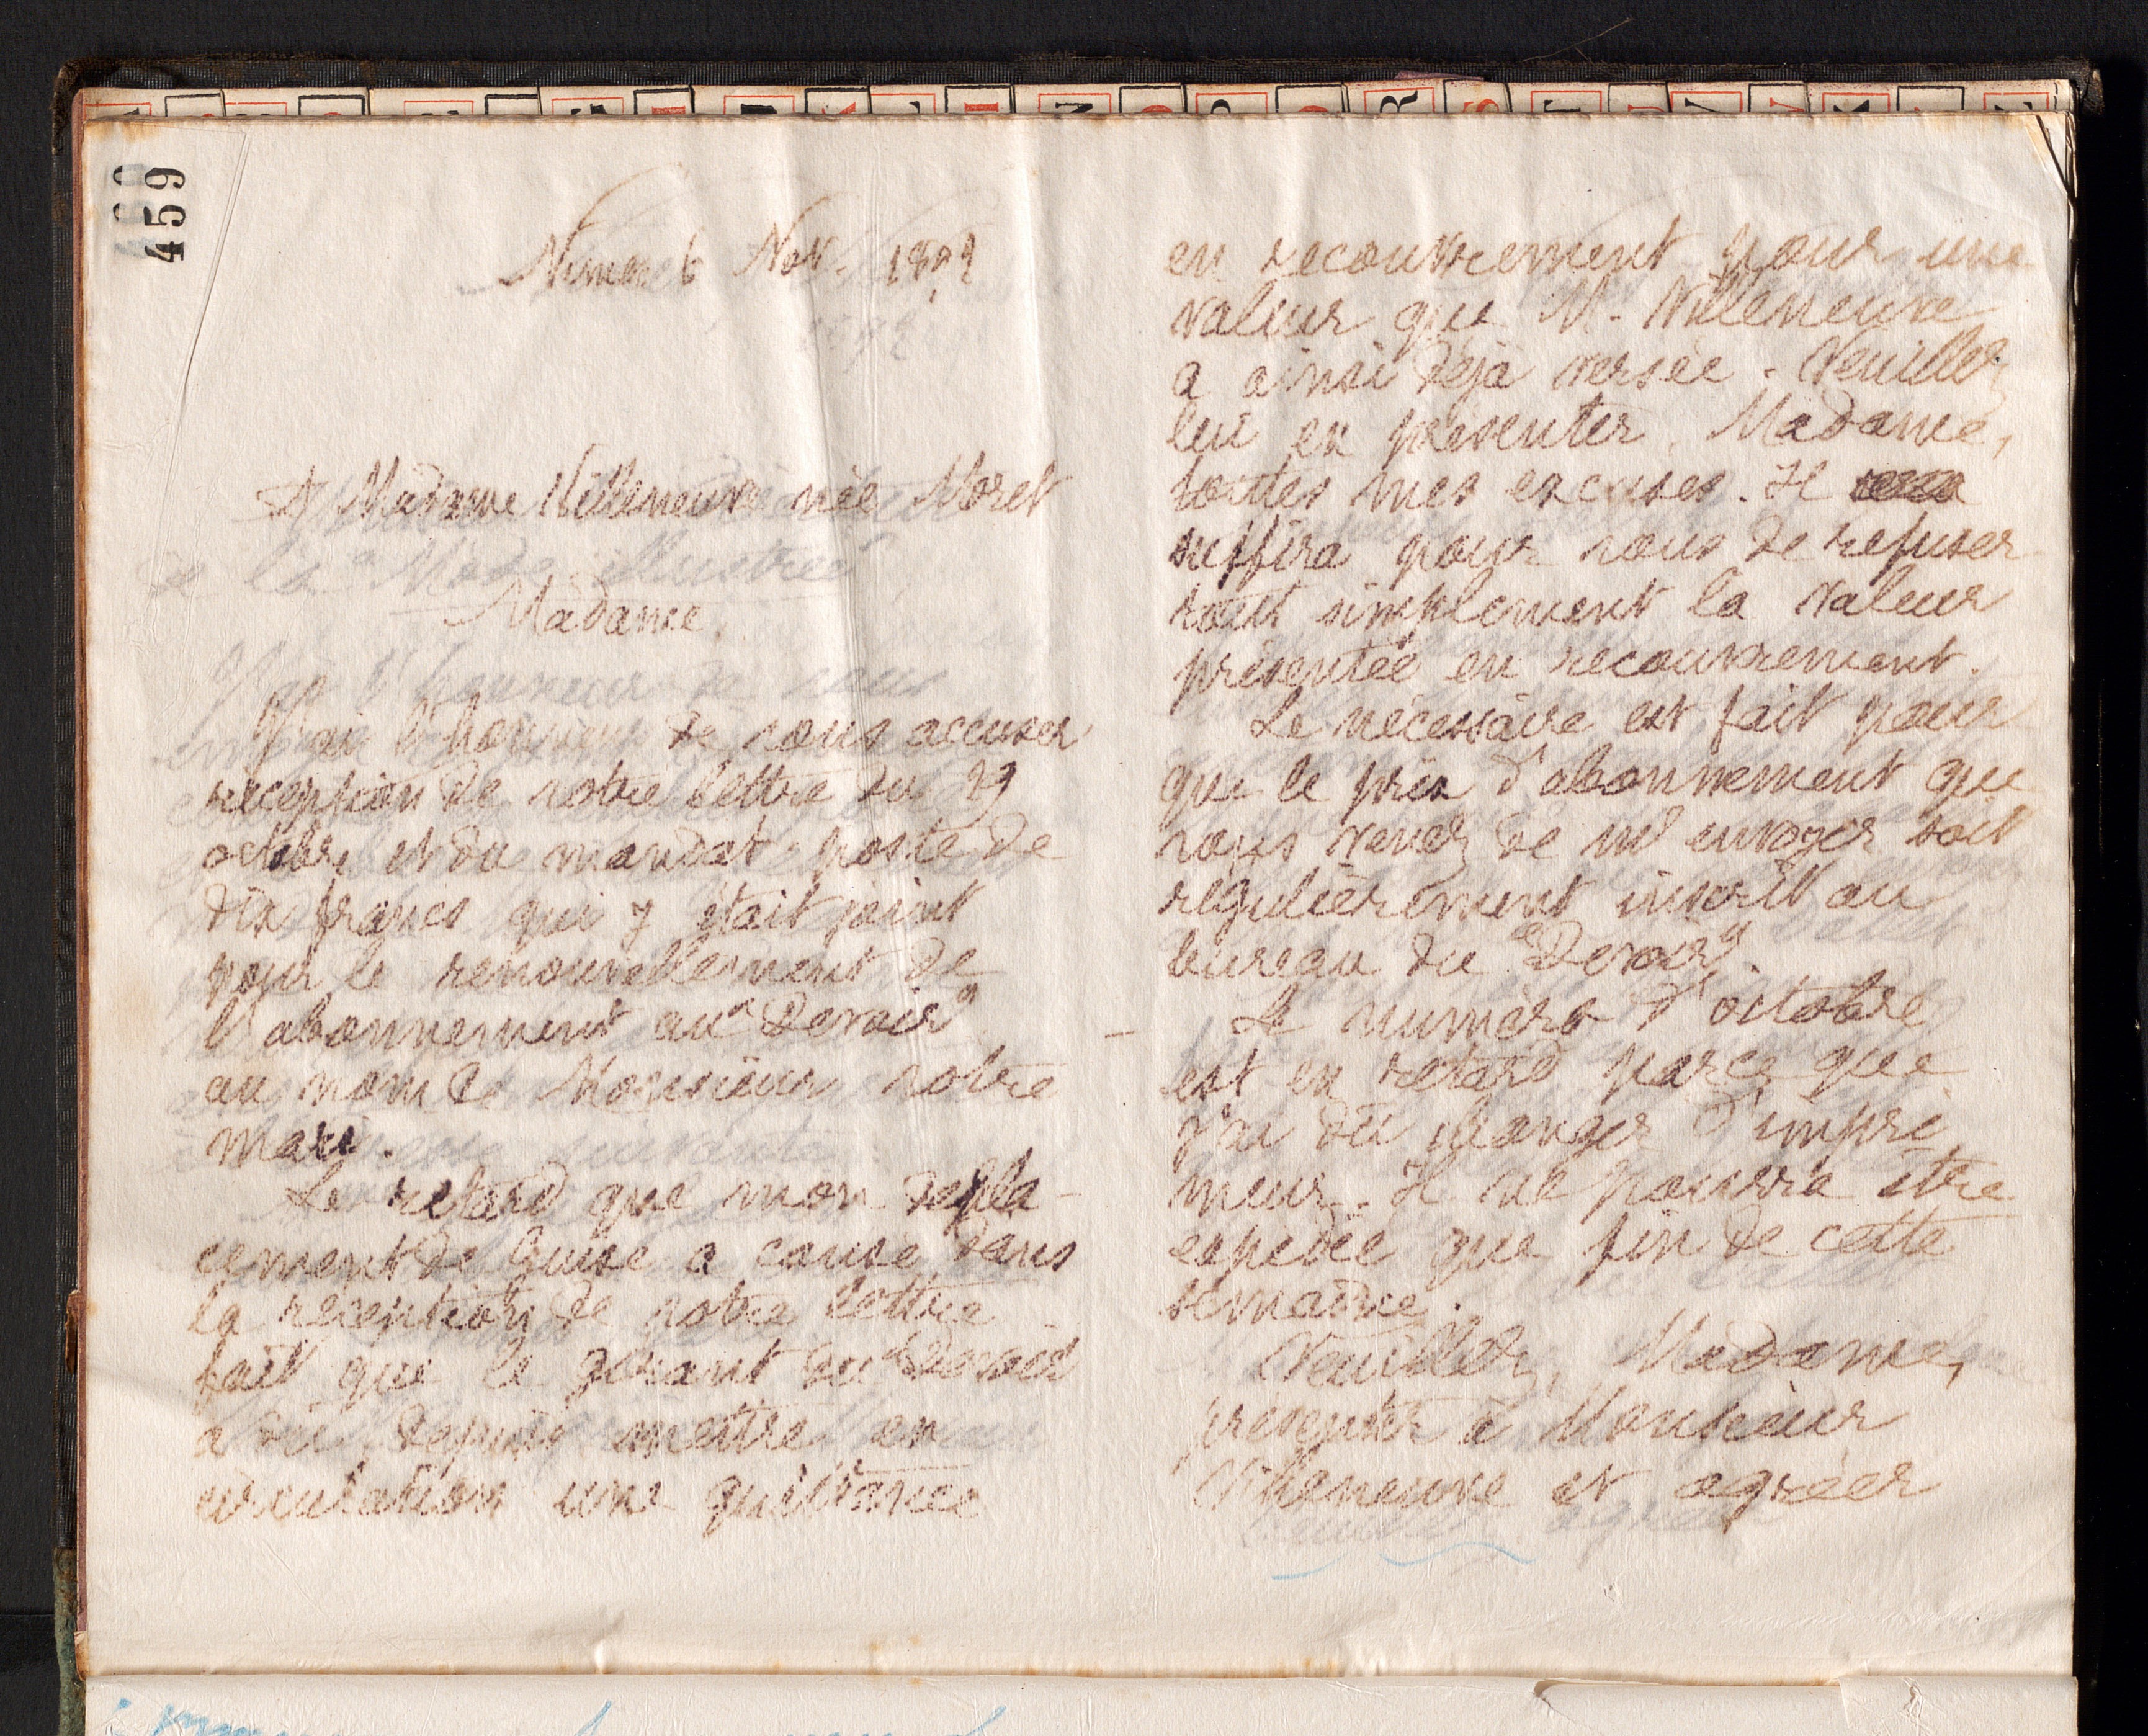 459
Nîmes 6 Nov. 1892
A Madame Villeneuve née Moret
Madame,
J'ai l'honneur de vous accuser
réception de votre lettre du 29
octobre et du mandat-poste de
dix francs qui y était joint
pour le renouvellement de
l'abonnement au "Devoir"
au nom de Monsieur votre
mari.
Le retard que mon dépla-
cement de Guise a causé dans
la réception de votre lettre
fait que le gérant du "Devoir
a dû, depuis, mettre en
circulation une quittance
en recouvrement pour une
valeur que M. Villeneuve
a ainsi déjà versée. Veuillez
lui en présenter, Madame,
toutes mes excuses. Il
suffira pour vous de refuser
tout simplement la valeur
présentée en recouvrement.
Le nécessaire est fait pour
que le prix d'abonnement que
vous venez de m'envoyer soit
régulièrement inscrit au
bureau du "Devoir".
Le numéro d'octobre
est en retard parce que
j'ai dû changer d'impri
meur. Il ne pourra être
expédié que fin de cette
semaine.
Veuillez, Madame,
présenter à Monsieur
Villeneuve et agréer